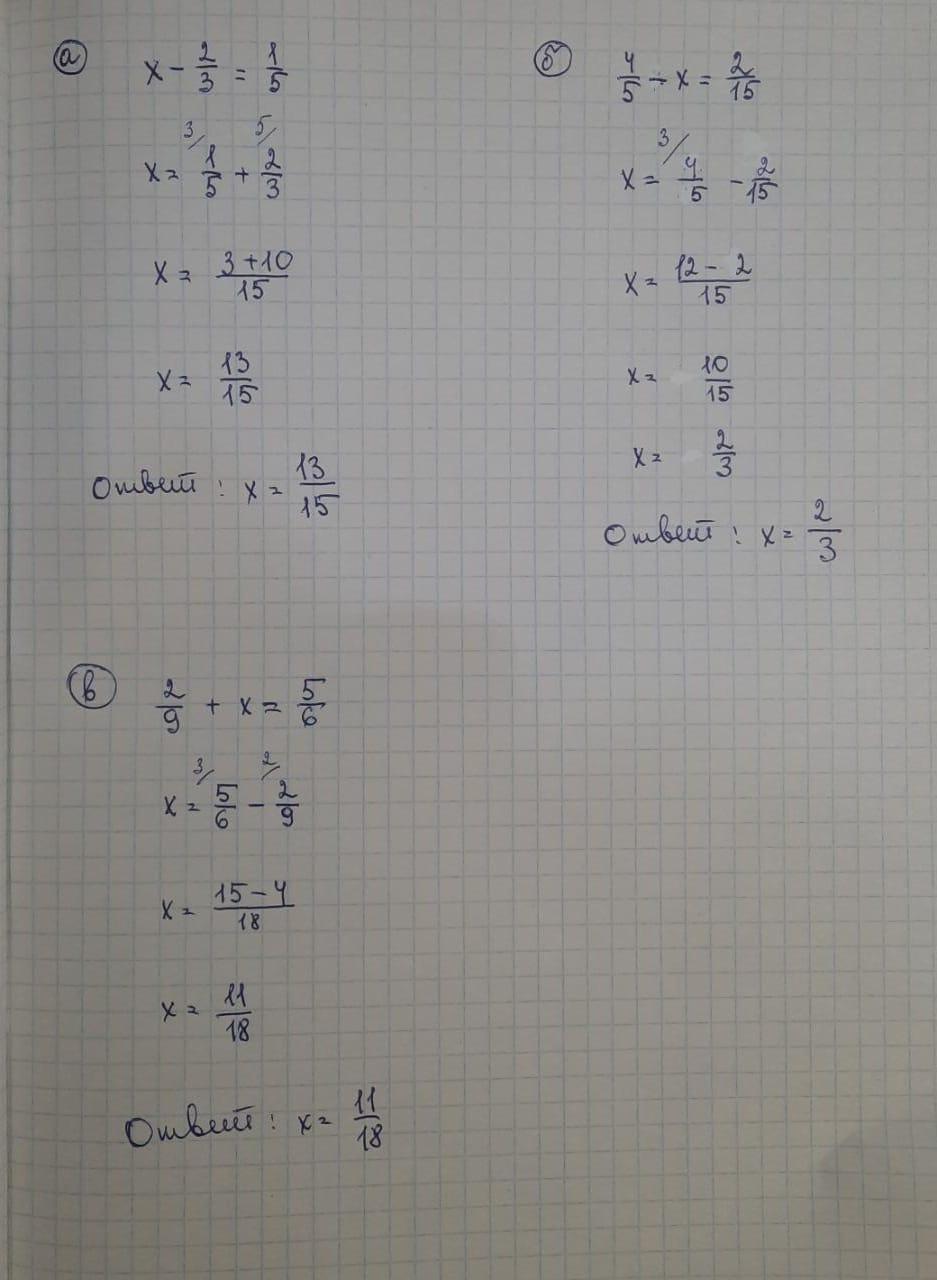 а) x - 2/3 = 1/5
x = 3/ 1/5 + 5/ 2/3
x = (3+10)/15
x = 13/15
Ответ: x = 13/15
б) 4/5 - x = 2/15
x = 3/ 4/5 - 2/15
x = (12 - 2)/15
x = 10/15
x = 2/3
Ответ: x = 2/3
в) 2/9 + x = 5/6
x = 3/ 5/6 - 2/ 2/9
x = (15-4)/18
x = 11/18
Ответ: x = 11/18